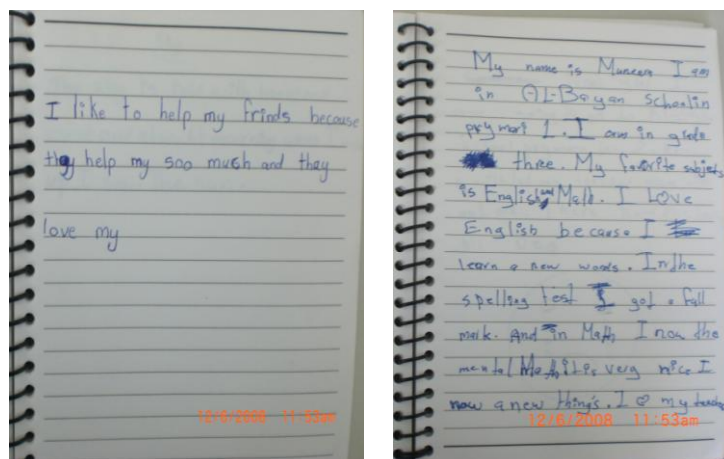 I like to help my frinds because
they help my soo much and they
love my
12/6/2008 11:53am
My name is Muneera I am
in Al-Bayan schoolin
prymart 1. I am in grade
three. My favorite subjects
is English and Math. I Love
English because I
learn a new words. In the
spelling test I got a full
mark. And in Math I now the
mental Math it is very nice I
now a new things. I my teacher
12/6/2008 11:53am